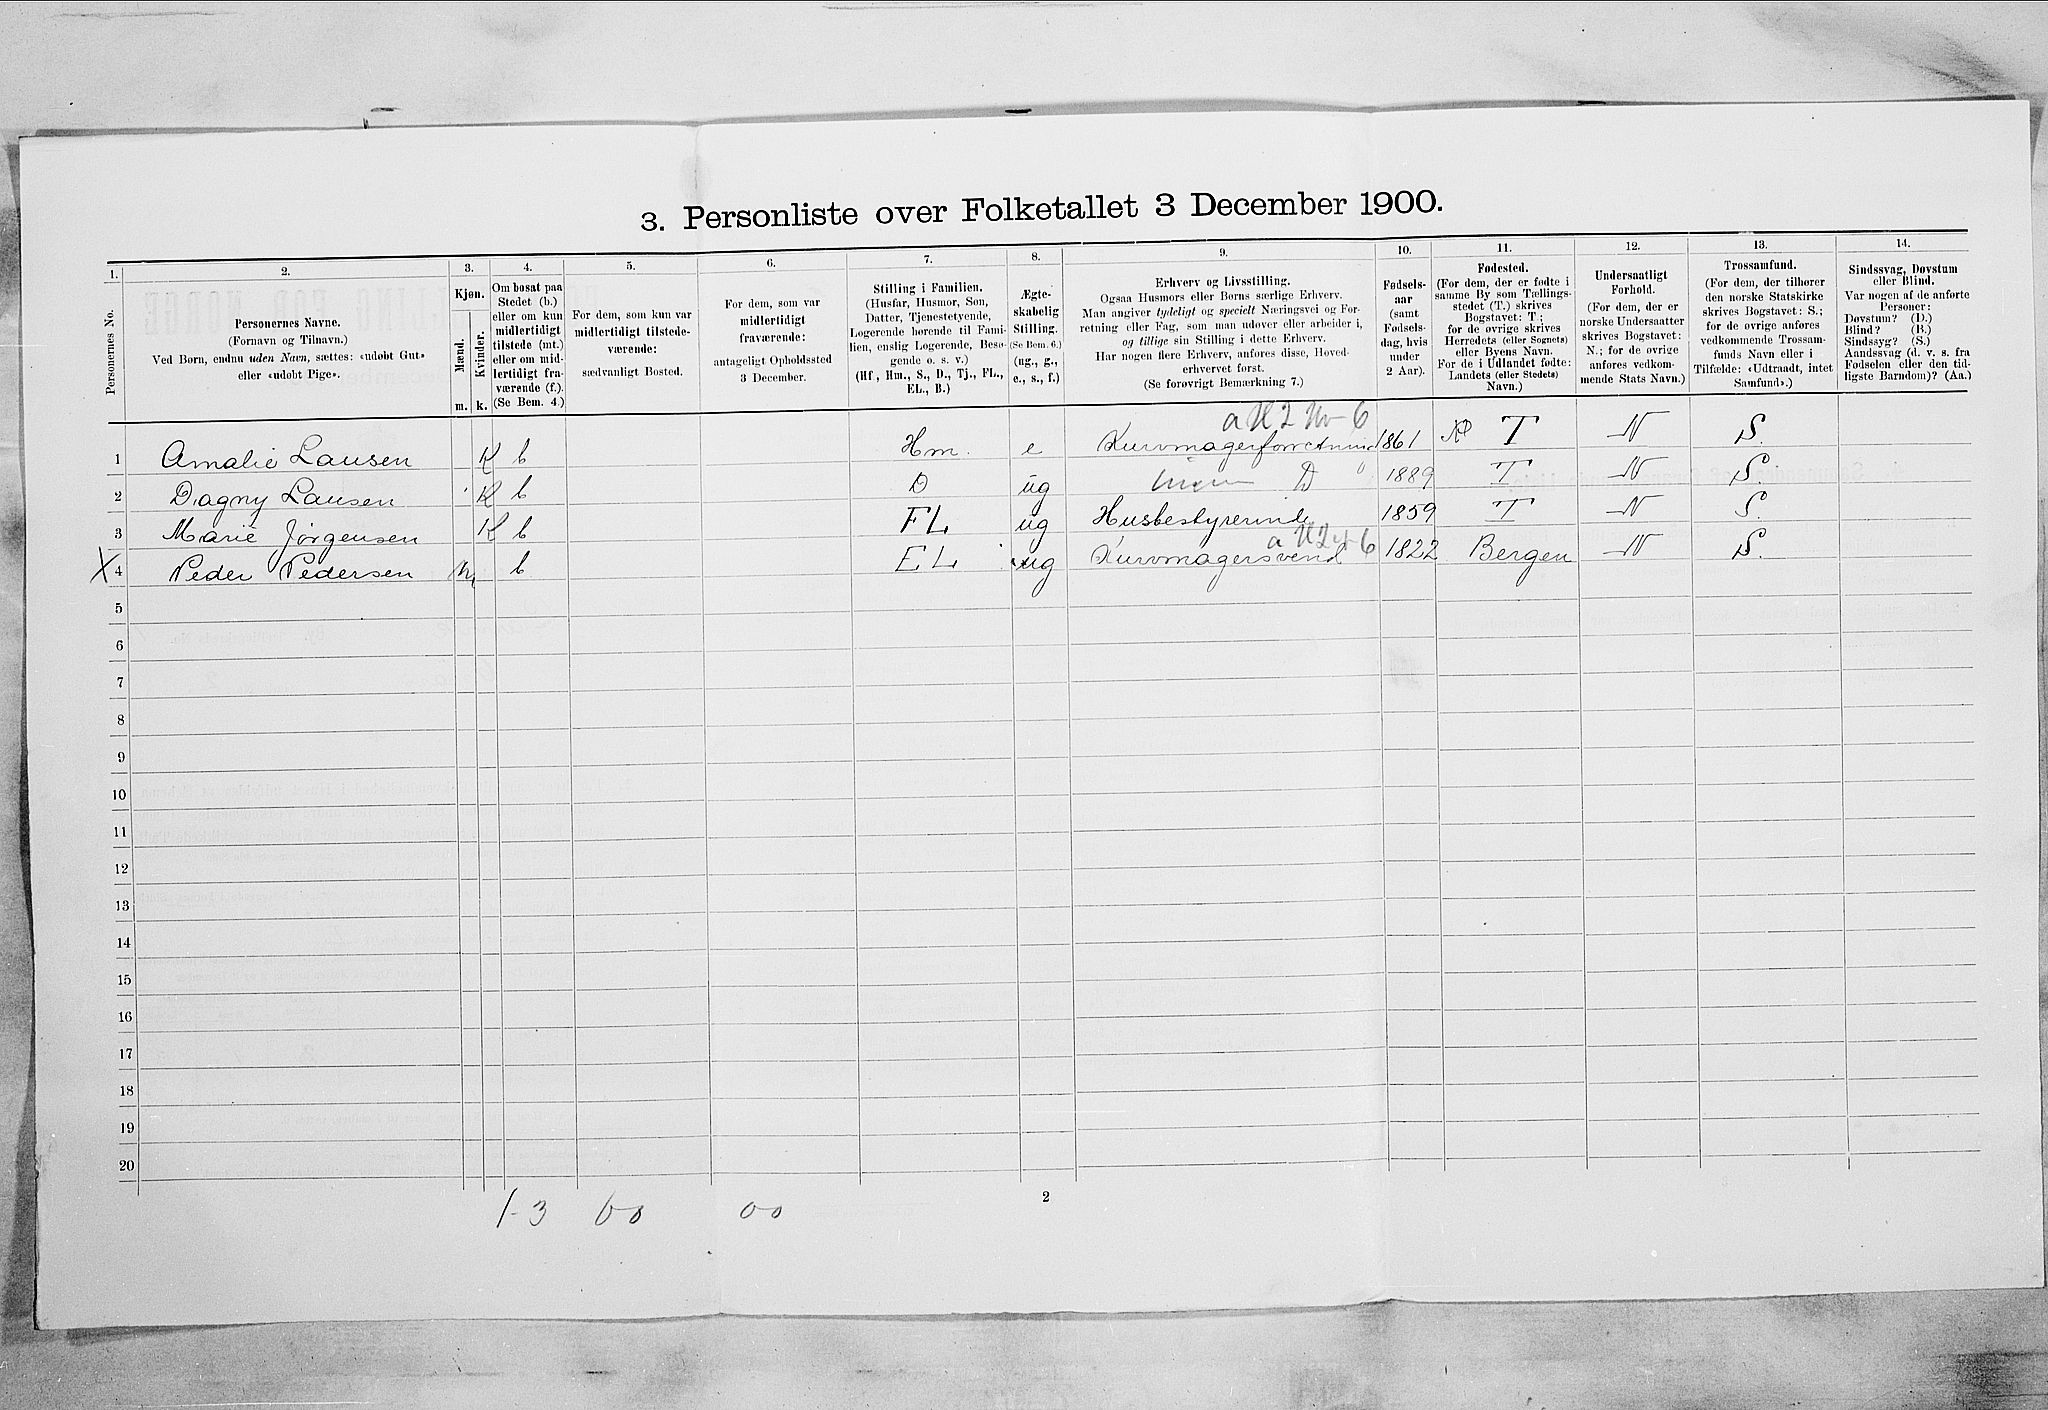 3. Personliste over Folketallet 3 December 1900.
1. 2. 3. 4. 5. 6. 7. 8. 9. 10. 11. 12. 13. 14.
Personernes No.
Personernes Navne.
(Fornavn og Tilnavn.)
Ved Børn, endnu uden Navn, sættes: «udøbt Gut»
eller «udøbt Pige».
Kjøn.
Mænd.
Kvinder.
m. k.
Om bosat paa
Stedet (b.)
eller om kun
midlertidigt
tilstede (mt.)
eller om mid-
lertidigt fra-
værende (f.)
(Se Bem. 4.)
For dem, som kun var
midlertidigt tilstede-
værende:
sædvanligt Bosted.
For dem, som var
midlertidigt
fraværende:
antageligt Opholdssted
3 December.
Stilling i Familien.
(Husfar, Husmor, Søn,
Datter, Tjenestetyende,
Logerende hørende til Fami-
lien, enslig Logerende, Besø-
gende o. s. v.)
(Hf, Hm., S., D., Tj., FL.,
EL., B.)
Ægte-
skabelig
Stilling.
(Se Bem. 6.)
(ug., g.,
e., s., f.)
Erhverv og Livsstilling.
Ogsaa Husmors eller Børns særlige Erhverv.
Man angiver tydeligt og specielt Næringsvei og For-
retning eller Fag, som man udøver eller arbeider i,
og tillige sin Stilling i dette Erhverv.
Har nogen flere Erhverv, anføres disse, Hoved-
erhvervet først.
(Se forøvrigt Bemærkning 7.)
Fødsels-
aar
(samt
Fødsels-
dag, hvis
under
2 Aar).
Fødested.
(For dem, der er fødte i
samme By som Tællings-
stedet (T.) skrives
Bogstavet: T;
for de øvrige skrives
Herredets (eller Sognets)
eller Byens Navn.
For de i Udlandet fødte:
Landets (eller Stedets)
Navn.)
Undersaatligt
Forhold.
(For dem, der er
norske Undersaatter
skrives Bogstavet:
N.; for de øvrige
anføres vedkom-
mende Stats Navn.)
Trossamfund.
(For dem, der tilhører
den norske Statskirke
skrives Bogstavet: S.;
for de øvrige anføres
vedkommende Trossam-
funds Navn eller i
Tilfælde: «Udtraadt, intet
Samfund».)
Sindssvag, Døvstum
eller Blind.
Var nogen af de anførte
Personer:
Døvstum? (D.)
Blind? (B.)
Sindssyg? (S.)
Aandssvag (d. v. s. fra
Fødselen eller den tid-
ligste Barndom)? (Aa.)
1 Amalie Lausen K b Hm. e Kurvmagerforretning 1861 T N S.
2 Dagny Lausen K b D ug D 1889 T N S.
3 Marie Jørgensen K b FL ug Husbestyrerinde 1859 T N S.
X 4 Peder Pedersen m b EL ug Kurvmagersvend 1822 Bergen N S.
5
6
7
8
9
10
11
12
13
14
15
16
17
18
19
20
1-3 00
2